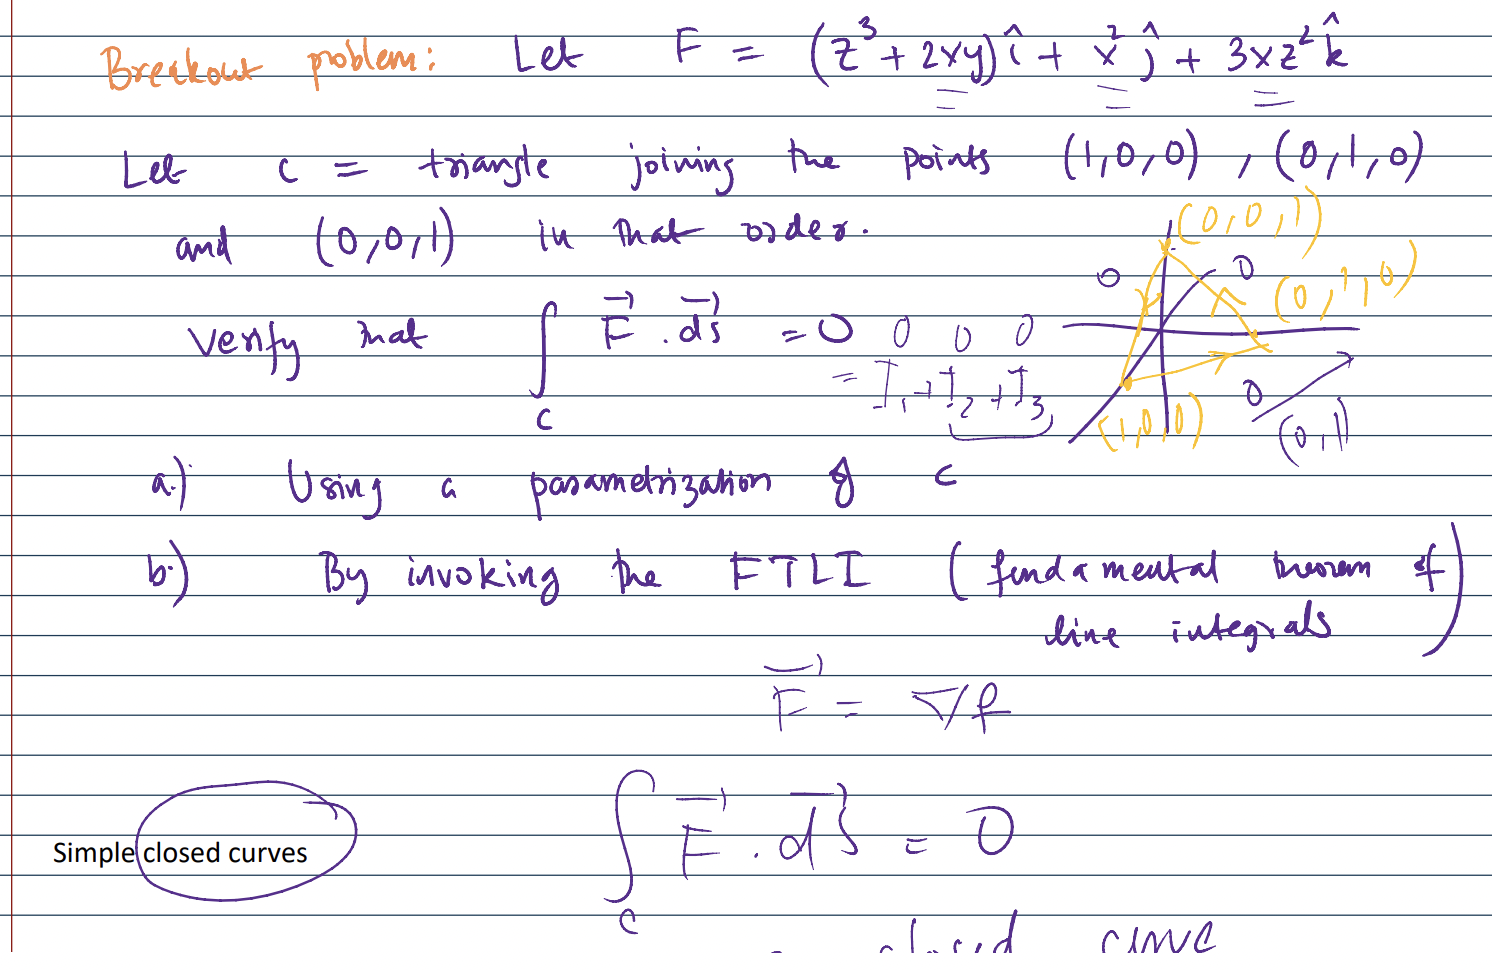 Breakout problem: Let F = (z³ + 2xy) î + x² ĵ + 3xz² k̂
Let C = triangle joining the points (1,0,0) , (0,1,0)
and (0,0,1) in that order.
(0,0,1)
0 0 (0,1,0)
Verify that ∫_C F⃗ . ds⃗ = 0 0 0 0
= I₁ + I₂ + I₃
(1,0,0) 0 (0,1)
a.) Using a parametrization of C
b.) By invoking the FTLI (fundamental theorem of
line integrals)
F⃗ = ∇f
Simple closed curves
∫_C F⃗ . ds⃗ = 0
closed curve